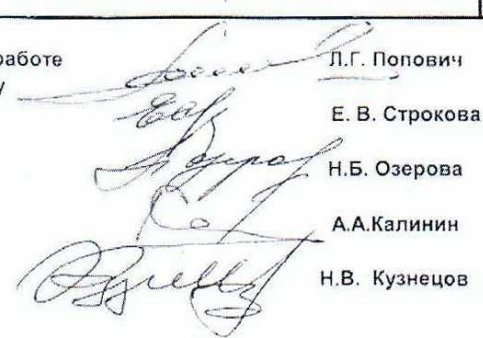 работе Л.Г. Попович
Е. В. Строкова
Н.Б. Озерова
А.А.Калинин
Н.В. Кузнецов